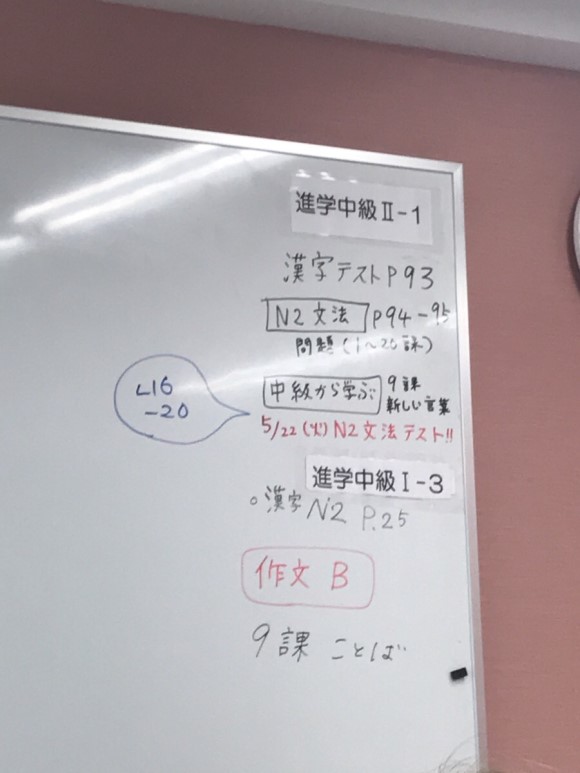 進学中級Ⅱ-1
漢字テストP93
N2文法 P94-95
問題(1~20課)
中級から学ぶ 9課
新しい言葉
L16
-20
5/22(火)N2文法テスト!!
進学中級Ⅰ-3
○漢字 N2 P.25
作文 B
9課 ことば